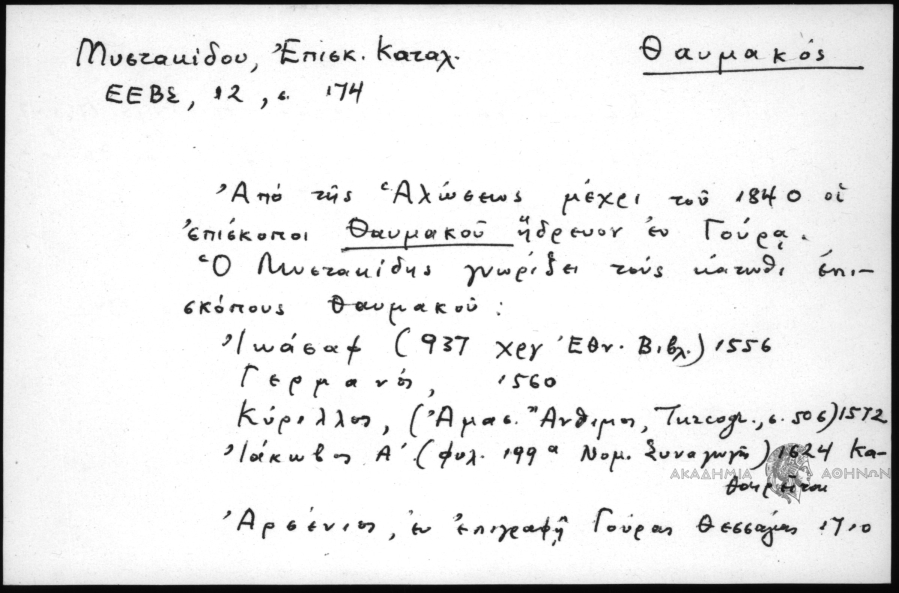 Μυστακίδου, Ἐπισκ. Καταλ. Θαυμακός
ΕΕΒΣ, 12, σ. 174
Ἀπὸ τῆς Ἁλώσεως μέχρι τοῦ 1840 οἱ
ἐπίσκοποι Θαυμακοῦ ἥδρευον ἐν Γούρᾳ.
Ὁ Μυστακίδης γνωρίζει τοὺς κάτωθι ἐπι-
σκόπους Θαυμακοῦ:
Ἰωάσαφ (937 χργ Ἐθν. Βιβλ.) 1556
Γερμανός, 1560
Κύριλλος, (Ἀμασ. Ἄνθιμος, Turcogr., σ. 506) 1572
Ἰάκωβος Α΄ (φυλ. 199α Νομ. Συναγωγῆς) 1624 κα-
θαιρεῖται
ΑΚΑΔΗΜΙΑ ΑΘΗΝΩΝ
Ἀρσένιος, ἐν ἐπιγραφῇ Γούρας Θεσσαλίας 1710